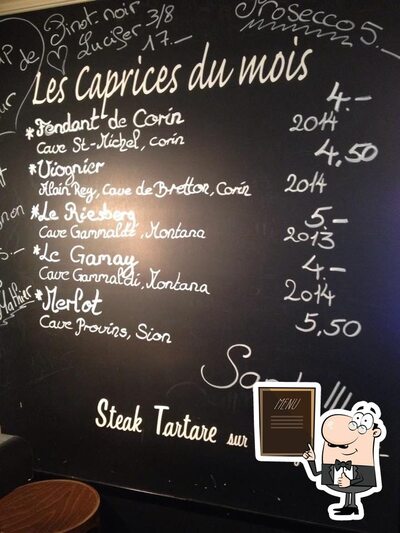 Pinot noir 3/8
de Lucifer 17.-
Prosecco 5.-
Les Caprices du mois
*Fendant de Corin 4.-
Cave St-Michel, Corin 2014
*Viognier 4,50
Alain Rey, Cave de Bretton, Corin 2014
*Le Riesberg 5.-
Cave Gammaldi, Montana 2013
*Le Gamay 4.-
Cave Gammaldi, Montana 2014
*Merlot 5,50
Cave Provins, Sion
Steak Tartare sur
MENU